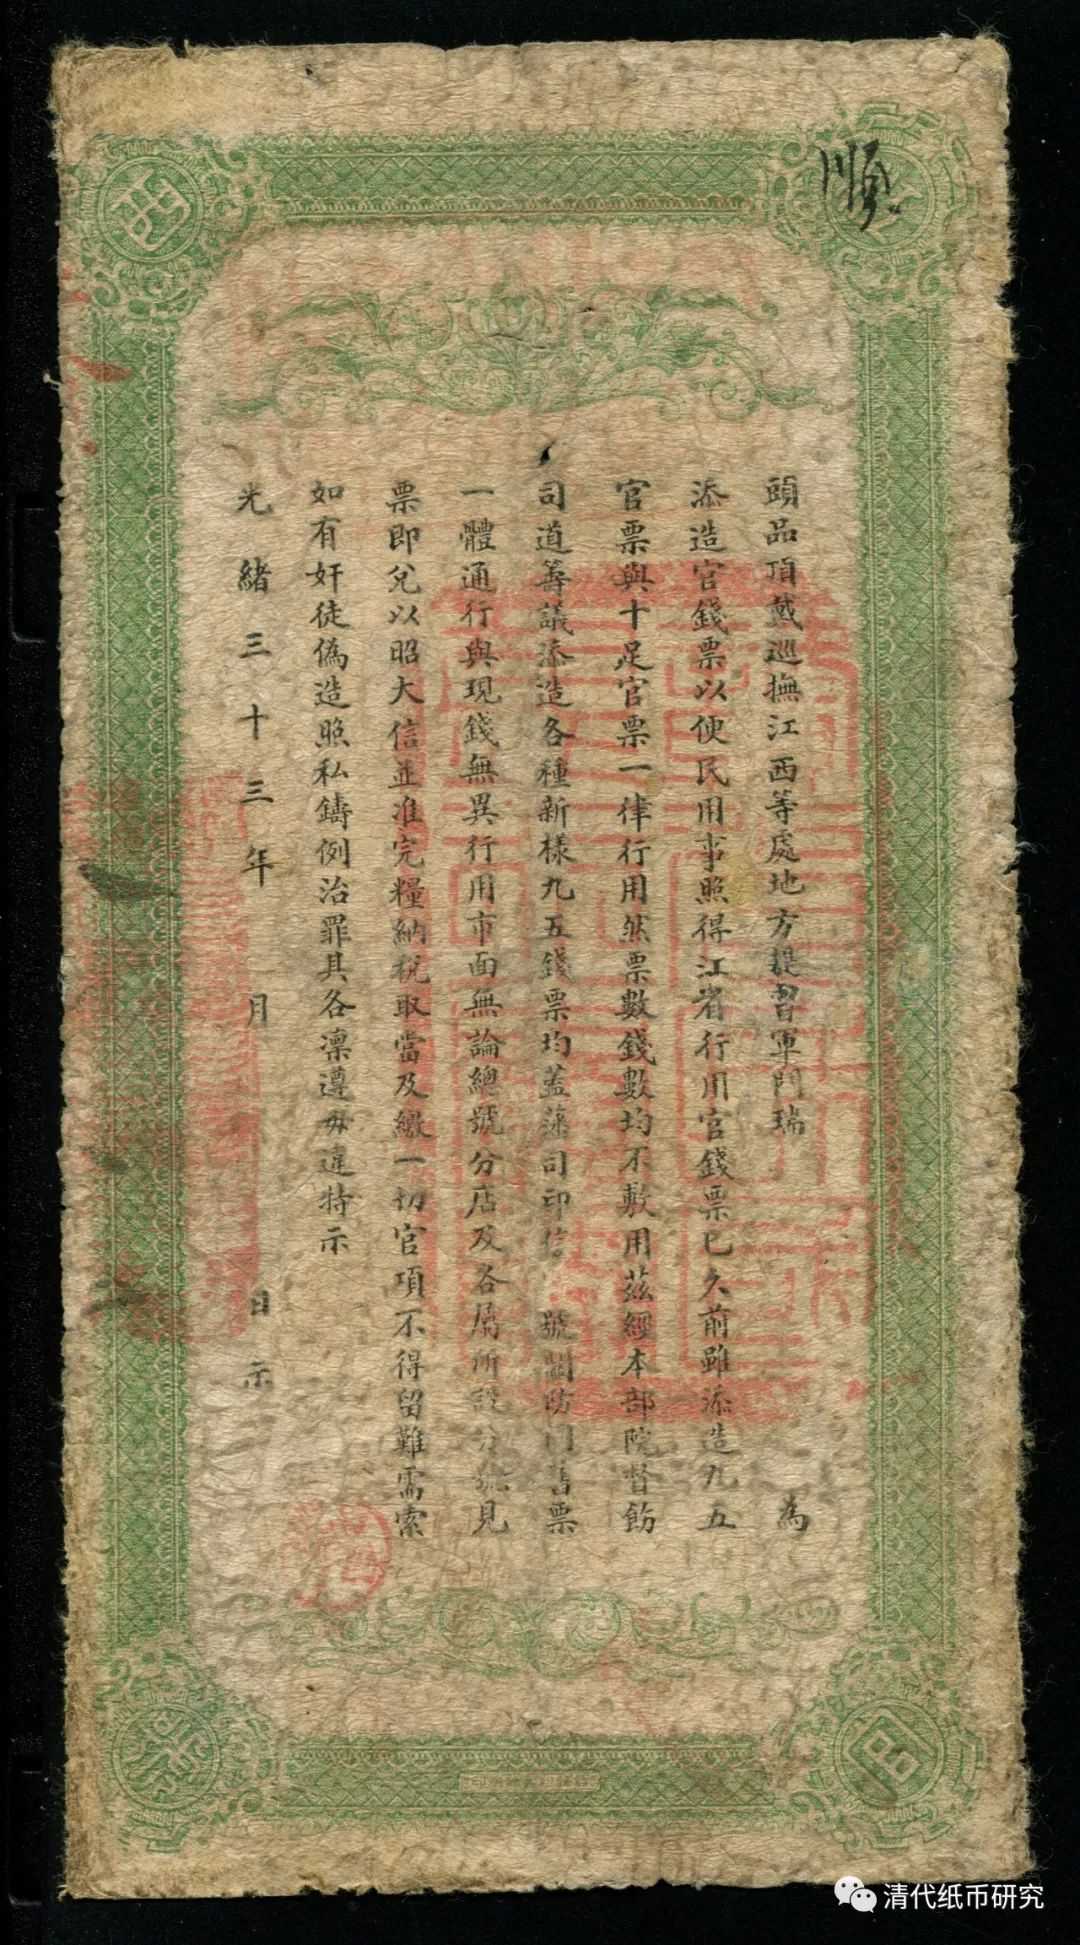 順
西
官
票
頭品頂戴巡撫江西等處地方提督軍門瑞 為
添造官錢票以便民用事照得江省行用官錢票已久前雖添造九五
官票與十足官票一律行用然票數錢數均不敷用茲經本部院督飭
司道籌議添造各種新樣九五錢票均蓋藩司印信 號關防同舊票
一體通行與現錢無異行用市面無論總號分店及各屬所設分號見
票即兌以昭大信並准完糧納稅取當及繳一切官項不得留難需索
如有奸徒偽造照私鑄例治罪其各凜遵毋違特示
光緒三十三年 月 日示
清代纸币研究